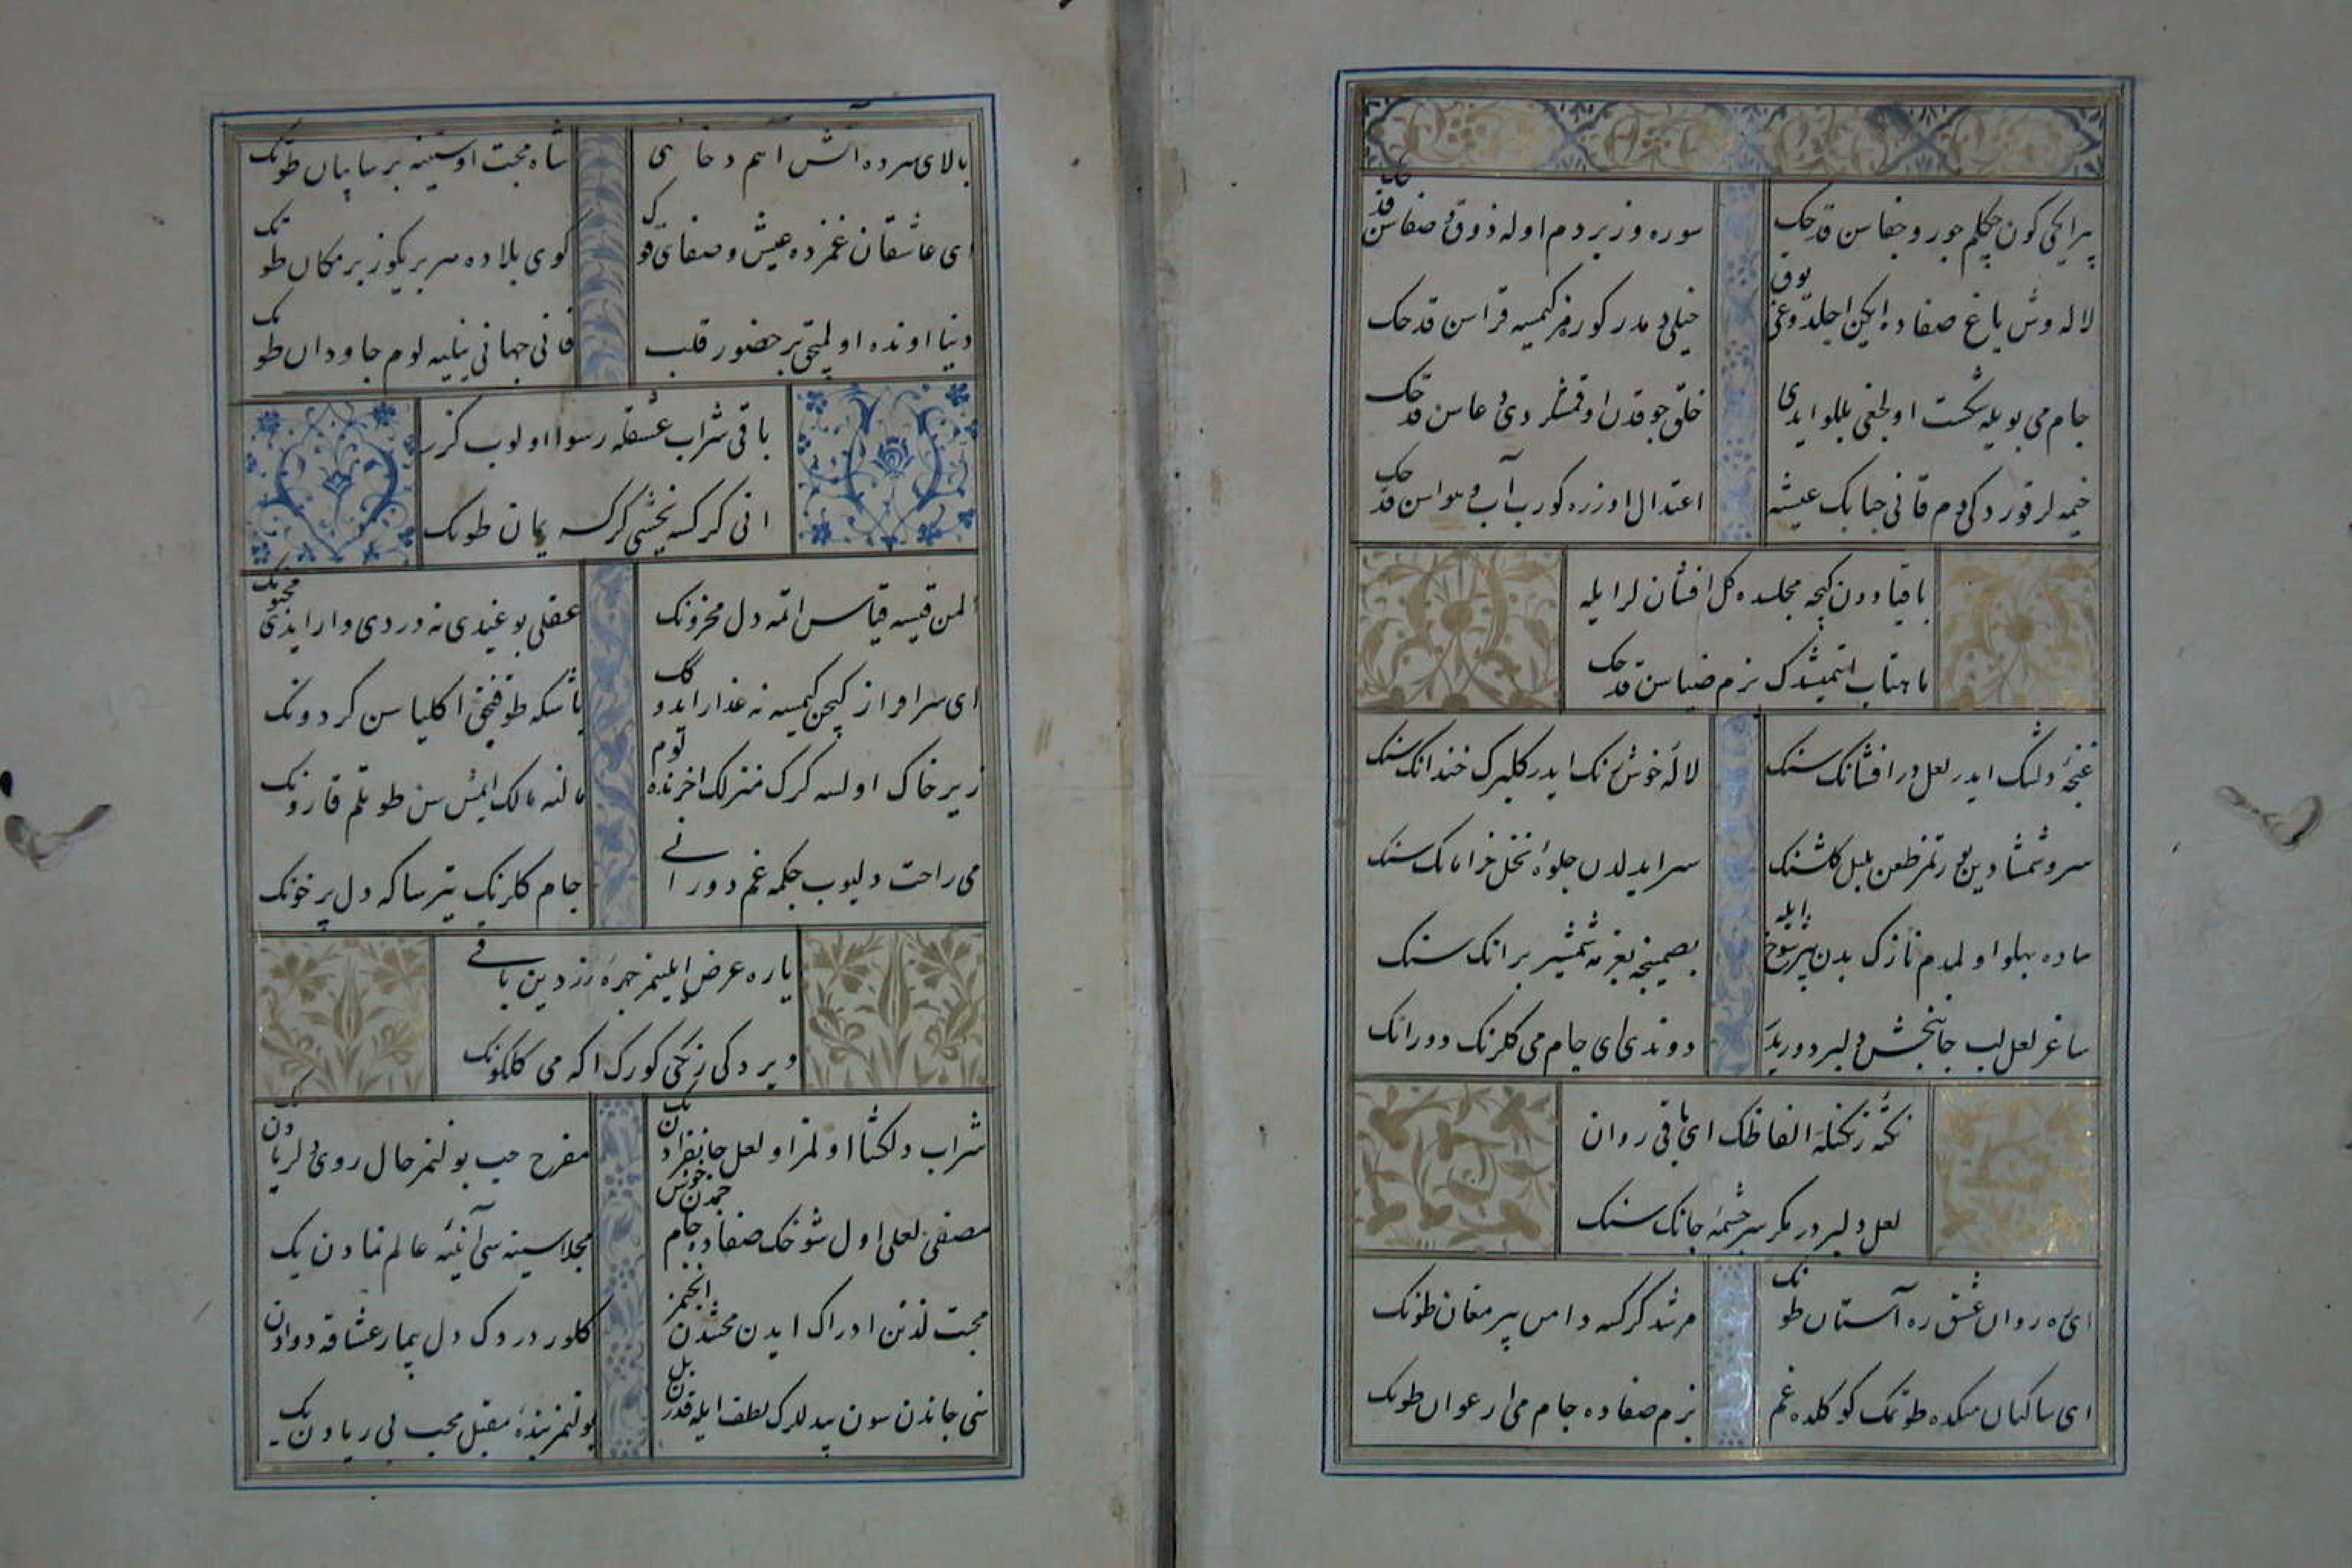 بر ایکی کون چکلم جور و جفاسن قدحک
سوره وز بر دم اوله ذوق و صفاسن قدحک
لاله وش باغ صفاده ایکن اچلدوغی یوق
خیلی دمدر کوره مز کیمسه قراسن قدحک
جام می بویله شکست اولدغی بللو ایدی
خلق چوقدن اوقمشلردی دعاسن قدحک
خیمه لر قوردکی دم قانی حبابک عیشه
اعتدال اوزره کورب آب و هواسن قدحک
باقیا دون کیجه مجلسده کل افشانلر ایله
ماهتاب ایتمشدک بزم ضیاسن قدحک
غنچهٔ دلتنک ایدر لعل در افشانک سنک
لالهٔ خوش رنک ایدر کلبرک خندانک سنک
سرو شمشادین قور تمز طعن بلبل کلشنک
سر ایدیلدن جلوهٔ نخل خرامانک سنک
ساده پهلو اولمدم نازک بدن بر شوخ ایله
بصمینجه بغرنه شمشیر برانک سنک
ساغر لعل لب جانبخش دلبر دوریدر
دوندی ای جام می کلرنک دورانک سنک
الفاظک ای باقی روان
لعل دلبردر مکر سرچشمهٔ جانک سنک
ای رهروان عشق ره آستان طوتک
مرشد کرکسه دامن پیر مغان طوتک
ای ساکنان میکده طوتمک کوکلده غم
بزم صفاده جام می ارغوان طوتک
بالای سرده آتش آهم دخانی
شاه محبت اوستینه بر سایبان طوتک
ای عاشقان غمزده عیش و صفای قوک
کوی بلاده سر بریکوز بر مکان طوتک
دنیا اونده اولمیجق بر حضور قلب
فانی جهانی نیلیه لوم جاودان طوتک
باقی شراب عشقله رسوا اولوب کزر
انی کرکسه یخشی کرکسه یمان طوتک
المن قیسه قیاس اتمه دل محزونک
عقلی یوغیدی نه دردی وار ایدی مجنونک
ای سرافراز کچن کیمسه نه غدار ایدوکک
باشکه طوقنجق اکلیاسن کردونک
زیر خاک اولسه کرک منزلک اخر نده توم
مالنه مالک ایمش سن طوتلم قارونک
می راحت دلیوب چکمه غم دورانی
جام کلرنک یتر ساکه دل پر خونک
یاره عرض ایلیمز چهرهٔ زردین باقی
ویردکی رنکی کورک اکه می کلکونک
شراب دلکشا اولمز او لعل جانفزادن یک
مفرح حب بولنمز خال روی دلربادن یک
مصفی لعلی اول شوخک صفاده جام جمدن خوش
مجلا سینه سی آیینهٔ عالم نمادن یک
محبت لذتن ادراک ایدن محنتدن انجنمز
کلور دردک دل بیمار عشاقه دوادن
سنی جاندن سون بیدللرک لطف ایله قدرن بل
بولنمز بندهٔ مقبل محب بی ریادن یک